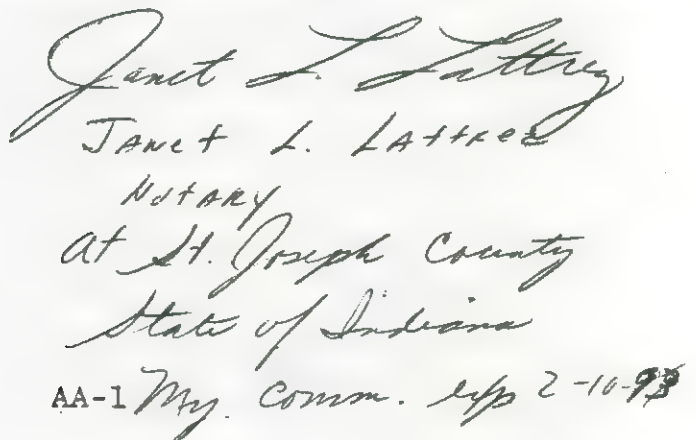 Janet L. Lattrez
Janet L. Lattrez
Notary
At St. Joseph County
State of Indiana
AA-1 My. Comm. exp 2-10-93